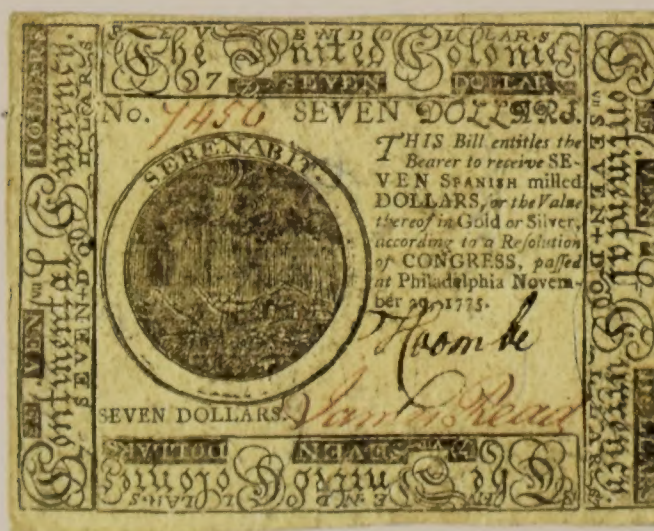 SEVEN DOLLARS.
The United Colonies
7 SEVEN DOLLARS
No. 7456 SEVEN DOLLARS.
SERENABIT.
THIS Bill entitles the
Bearer to receive SE-
VEN SPANISH milled
DOLLARS, or the Value
thereof in Gold or Silver,
according to a Resolution
of CONGRESS, passed
at Philadelphia Novem-
ber 29, 1775.
Koombe
SEVEN DOLLARS. Read
DOLLARS SEVEN
The United Colonies
SEVEN DOLLARS
Continental Currency.
DOLLARS
SEVEN
SEVEN DOLLARS
Continental Currency.
SEVEN DOLLARS